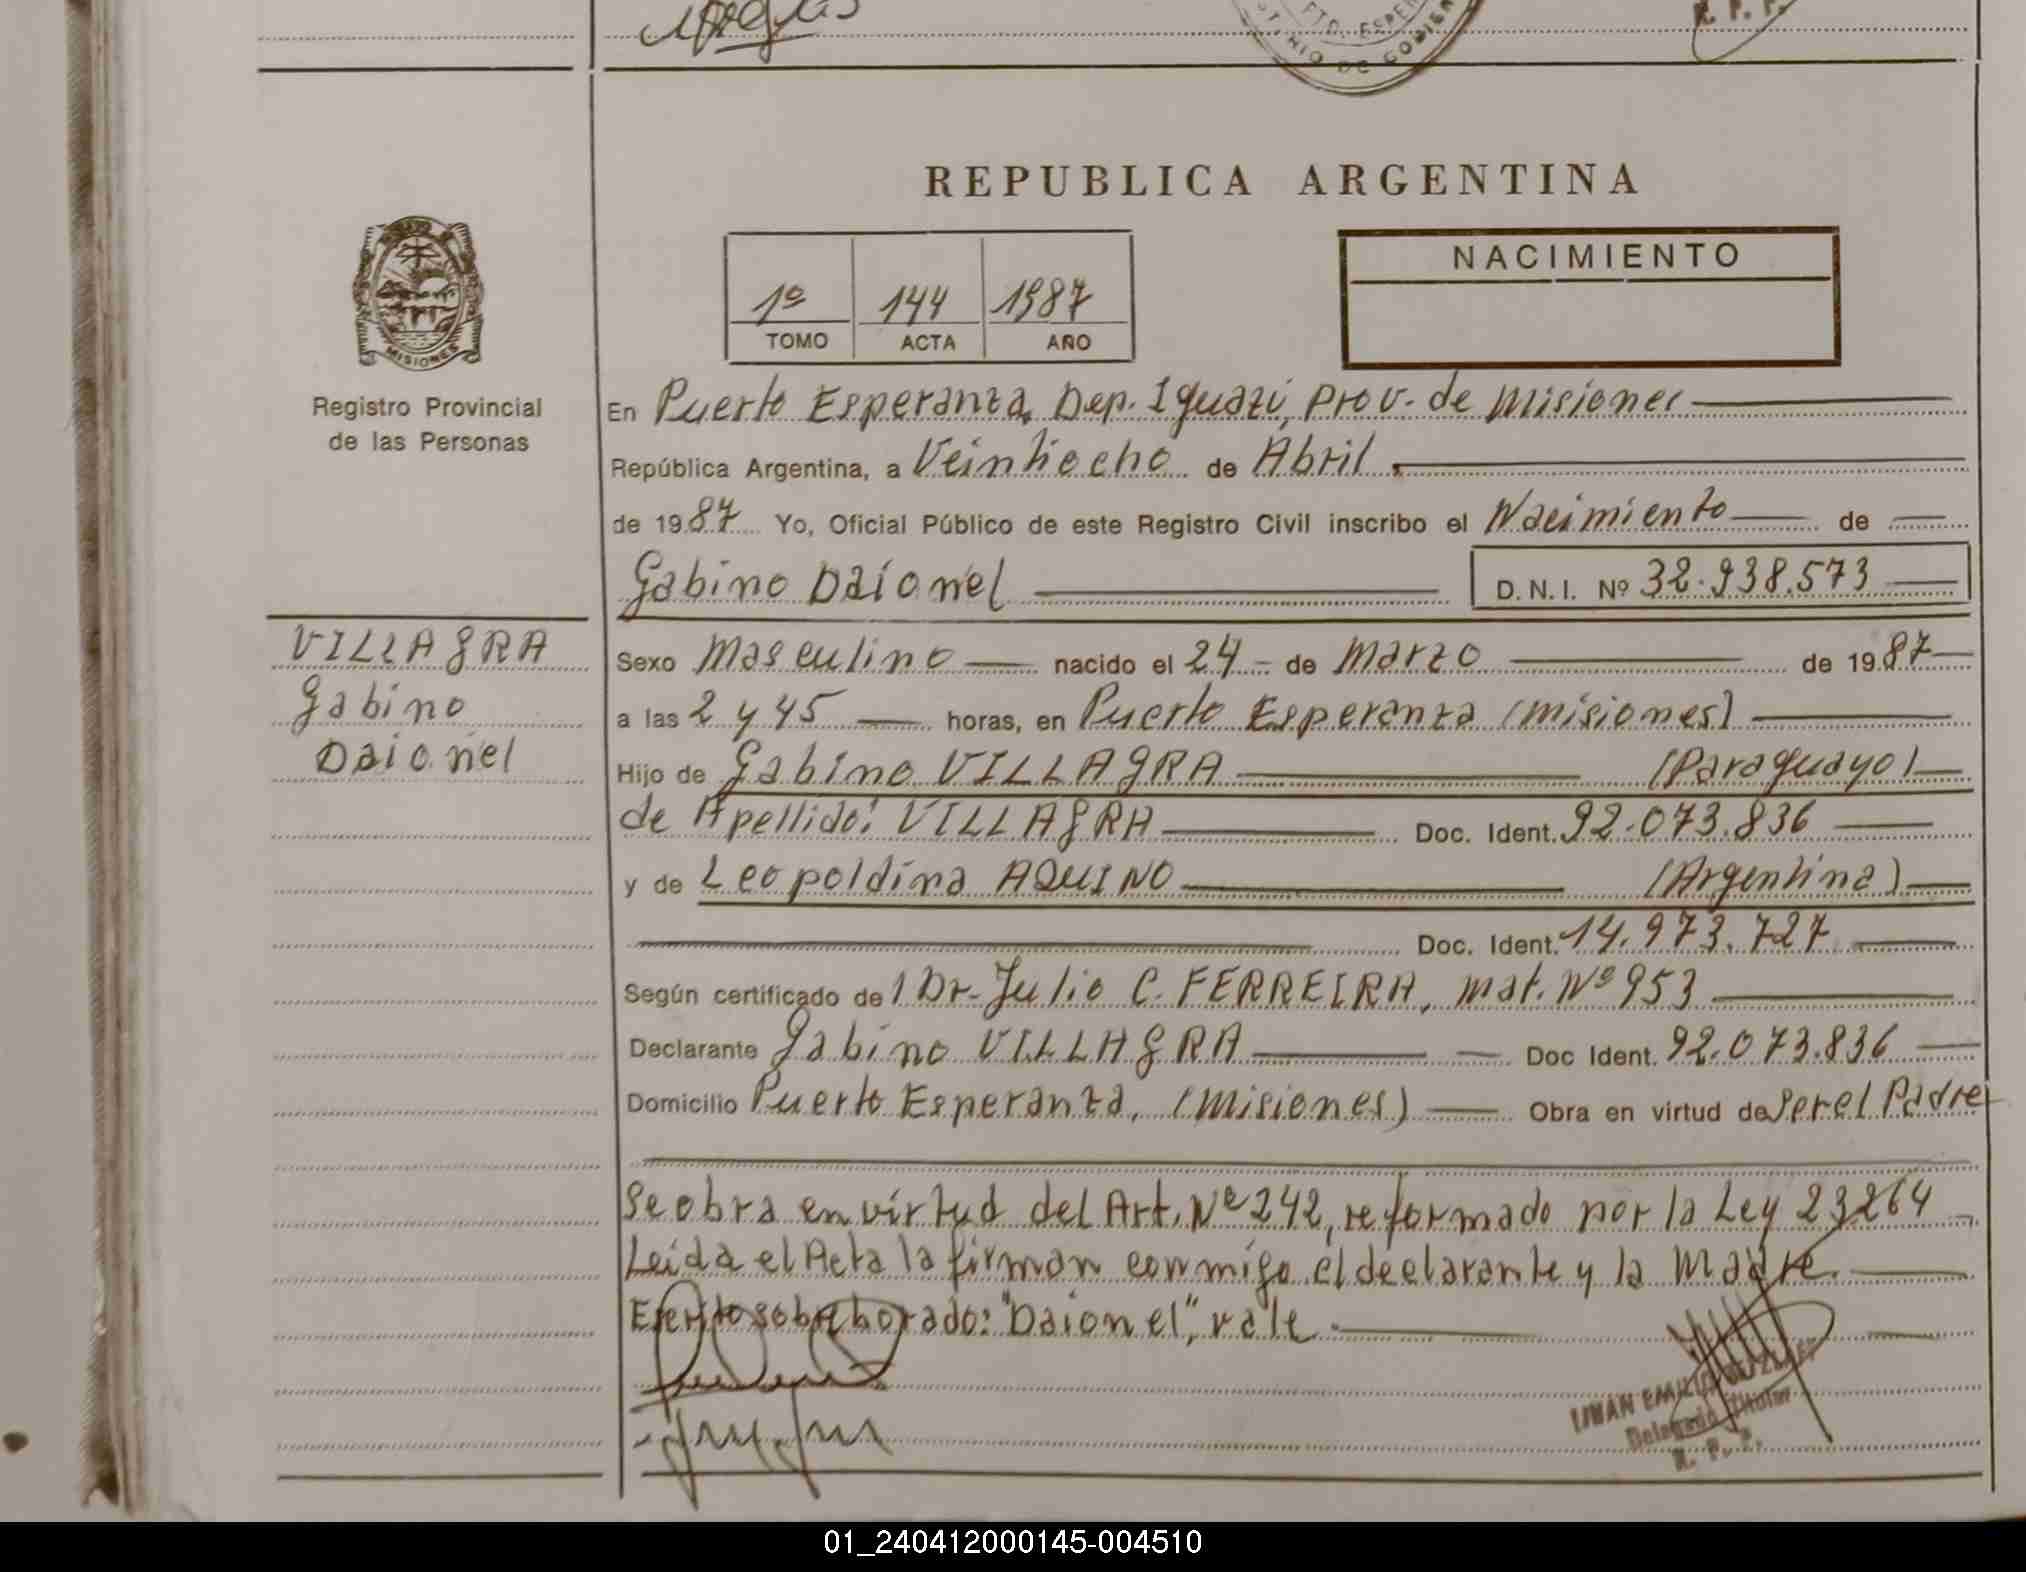 REPUBLICA ARGENTINA
NACIMIENTO
1º 144 1987
TOMO ACTA AÑO
MISIONES
Registro Provincial
de las Personas
En Puerto Esperanza, Dep. Iguazú, Prov. de Misiones
República Argentina, a Veintiocho de Abril
de 1987 Yo, Oficial Público de este Registro Civil inscribo el Nacimiento de
Gabino Daionel D.N.I. Nº 32.938.573
VILLAGRA
Gabino
Daionel
Sexo Masculino nacido el 24 de Marzo de 1987
a las 2 y 45 horas, en Puerto Esperanza (Misiones)
Hijo de Gabino VILLAGRA (Paraguayo)
de Apellido: VILLAGRA Doc. Ident. 92.073.836
y de Leopoldina AQUINO (Argentina)
Doc. Ident. 14.973.727
Según certificado de Dr. Julio C. FERREIRA, mat. Nº 953
Declarante Gabino VILLAGRA Doc Ident. 92.073.836
Domicilio Puerto Esperanza, (Misiones) Obra en virtud de Ser el Padre
Se obra en virtud del Art. Nº 242, reformado por la Ley 23264
Leída el Acta la firman conmigo el declarante y la Madre.
Escrito sobreborado: "Daionel", vale
Delegado Titular
R. P. P.
01_240412000145-004510